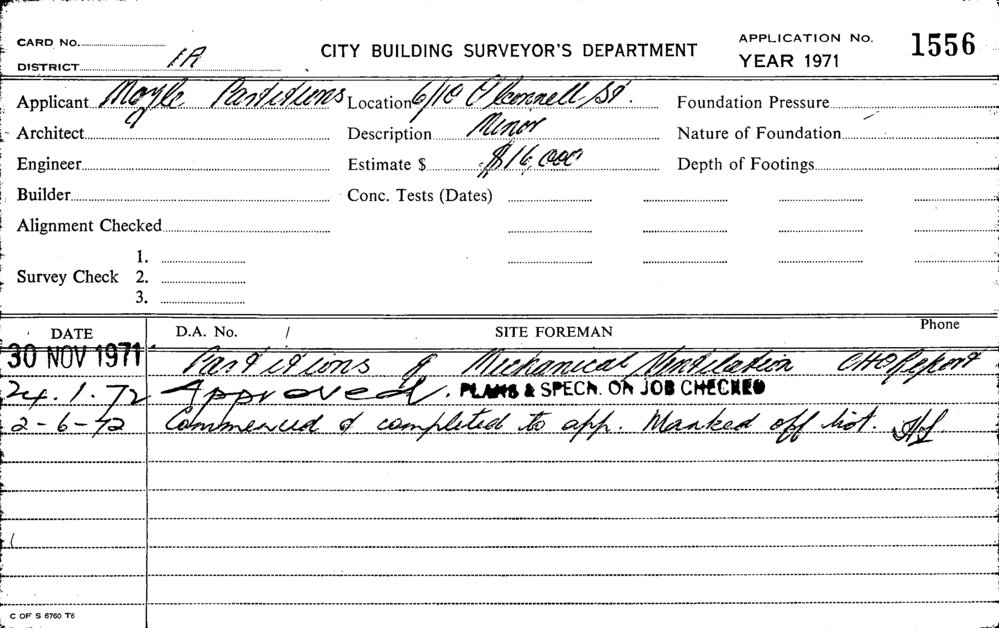 CARD No.
DISTRICT 1A
CITY BUILDING SURVEYOR'S DEPARTMENT
APPLICATION No. 1556
YEAR 1971
Applicant Moyle Partitions Location 6/10 O'Connell St. Foundation Pressure
Architect Description Minor Nature of Foundation
Engineer Estimate $ $16,000 Depth of Footings
Builder Conc. Tests (Dates)
Alignment Checked
1.
Survey Check 2.
3.
DATE D.A. No. / SITE FOREMAN Phone
30 NOV 1971 Partitions & Mechanical Ventilation CHO Report
24.1.72 Approved. PLANS & SPECN. ON JOB CHECKED
2-6-72 Commenced & completed to app. Marked off list.
C OF S 6760 T6